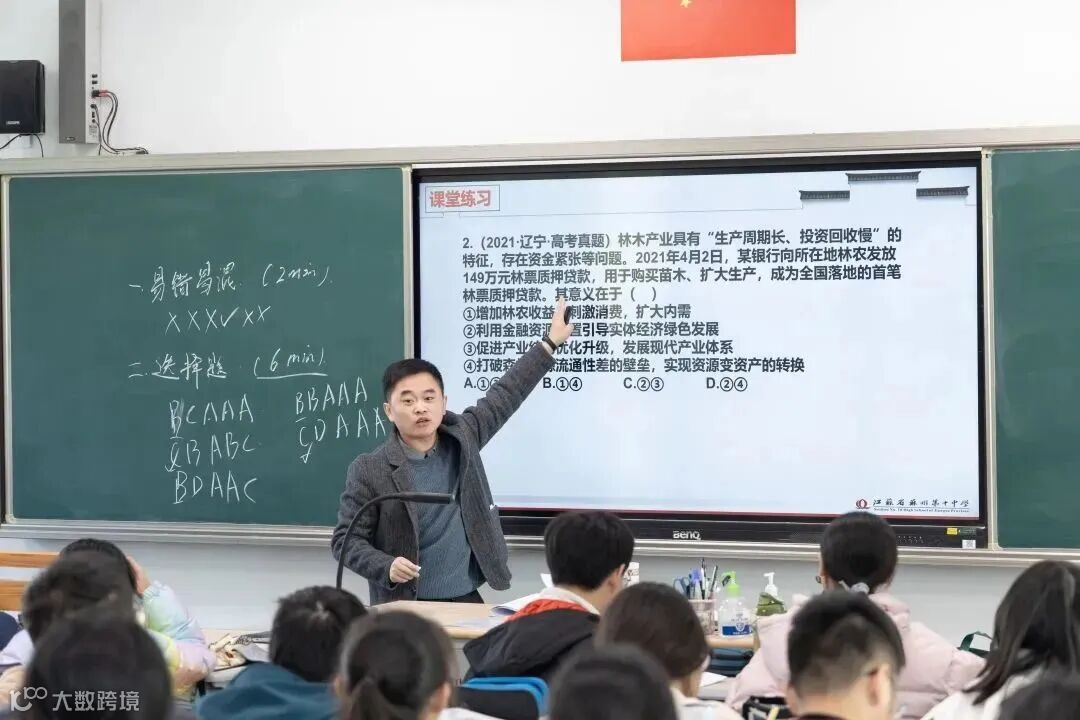 一.易错易混.(2min).
XXX✓XX
二.选择题.(6min).
BCAAA
BBAAA
CBABC
CDAAA
BDAAC
课堂练习
2.（2021·辽宁·高考真题）林木产业具有“生产周期长、投资回收慢”的
特征，存在资金紧张等问题。2021年4月2日，某银行向所在地林农发放
149万元林票质押贷款，用于购买苗木、扩大生产，成为全国落地的首笔
林票质押贷款。其意义在于（ ）
①增加林农收益 刺激消费，扩大内需
②利用金融资 引导实体经济绿色发展
③促进产业 优化升级，发展现代产业体系
④打破森 流通性差的壁垒，实现资源变资产的转换
A.① B.①④ C.②③ D.②④
江苏省苏州第十中学
Suzhou No.10 High School of Jiangsu Province
BenQ
大数跨境